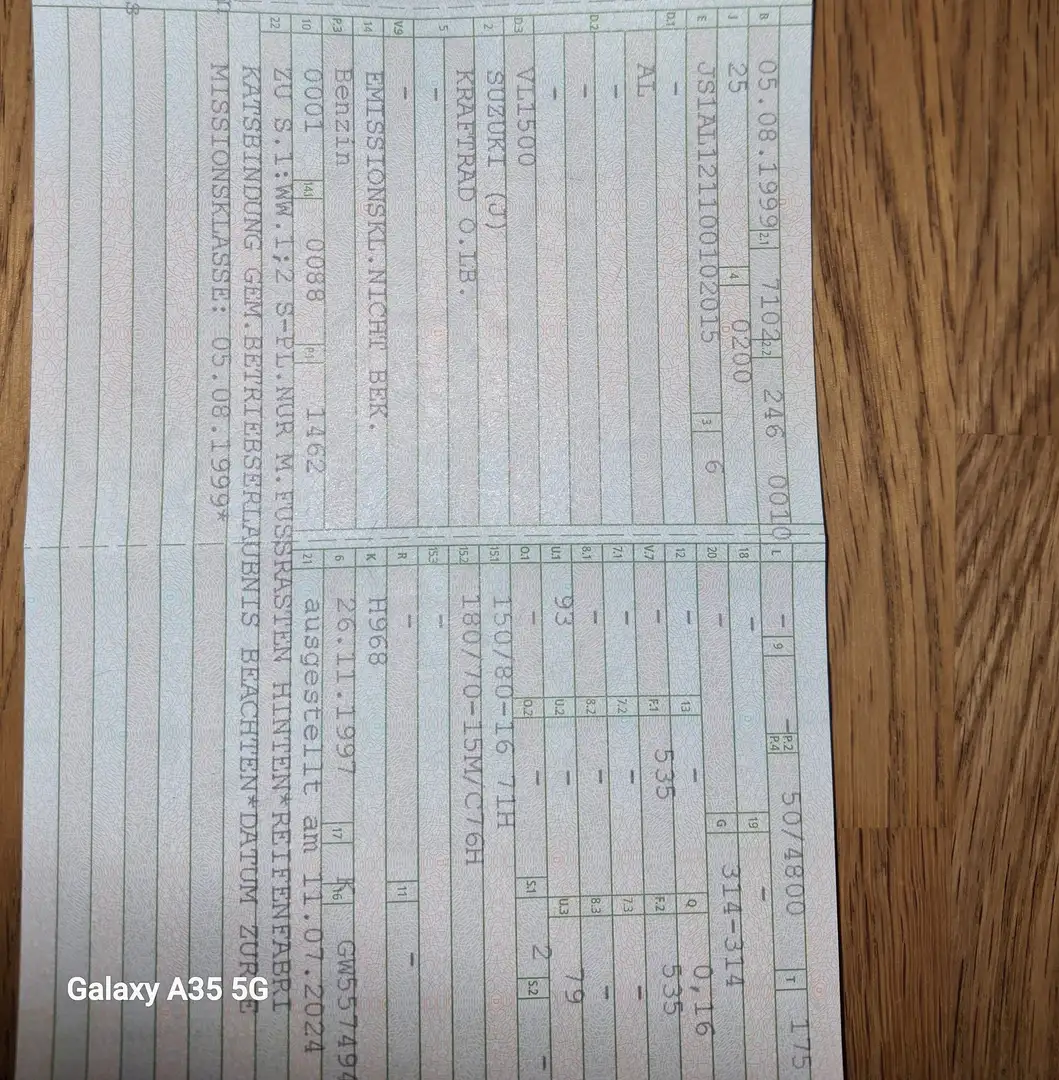 B 05.08.1999 2.1 7102 2.2 246 0010 L - 9 - P.2 P.4 50/4800 T 175
J 25 4 0200 18 - 19 -
E JS1AL121100102015 3 6 20 - G 314-314
D.1 - 12 - 13 - Q 0,16
AL V.7 - F.1 535 F.2 535
- 7.1 - 7.2 - 7.3 -
D.2 - 8.1 - 8.2 - 8.3 -
- U.1 93 U.2 - U.3 79
D.3 VL1500 O.1 - O.2 - S.1 2 S.2 -
2 SUZUKI (J) 15.1 150/80-16 71H
KRAFTRAD O.LB. 15.2 180/70-15M/C76H
5 - 15.3 -
V.9 - R - 11 -
14 EMISSIONSKL.NICHT BEK. K H968
P.3 Benzin 6 26.11.1997 17 K 16 GW557494
10 0001 14.1 0088 P.1 1462 21 ausgestellt am 11.07.2024
22 ZU S.1:WW.1;2 S-PL.NUR M.FUSSRASTEN HINTEN*REIFENFABRI
KATSBINDUNG GEM.BETRIEBSERLAUBNIS BEACHTEN*DATUM ZUR E
MISSIONSKLASSE: 05.08.1999*
Galaxy A35 5G